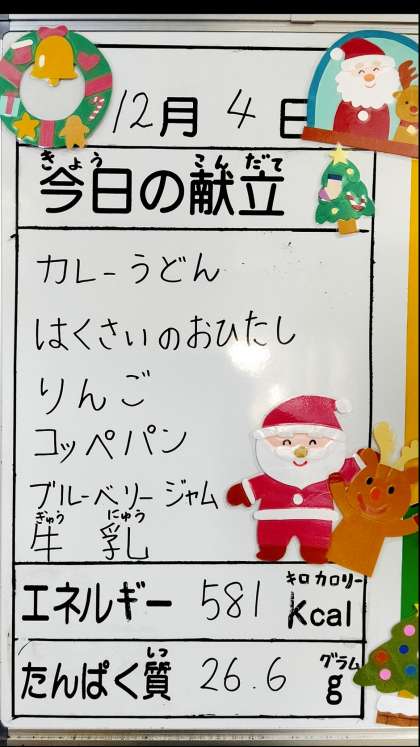 12月4日
きょう こんだて
今日の献立
カレーうどん
はくさいのおひたし
りんご
コッペパン
ブルーベリージャム
ぎゅう にゅう
牛乳
キロカロリー
エネルギー 581 Kcal
しつ グラム
たんぱく質 26.6 g